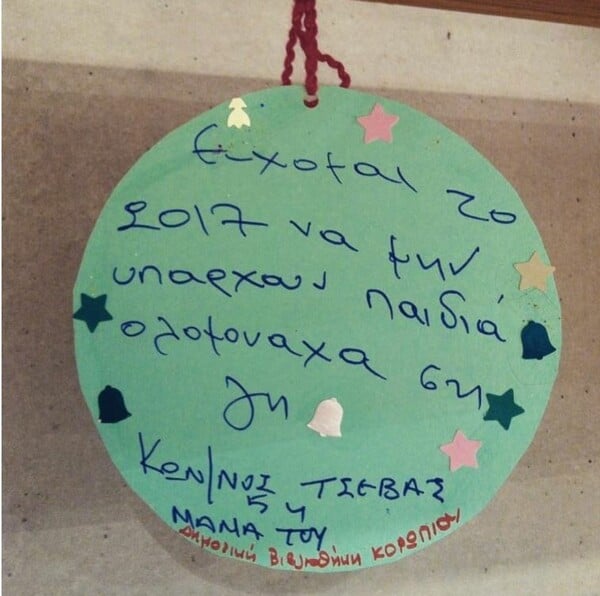 Ευχομαι το
2017 να μην
υπαρχουν παιδιά
ολομοναχα στη
γη
ΚΩΝ/ΝΟΣ ΤΣΕΒΑΣ
5 4
ΜΑΜΑ ΤΟΥ
Δημοτική Βιβλιοθήκη ΚΟΡΩΠΙΟΥ